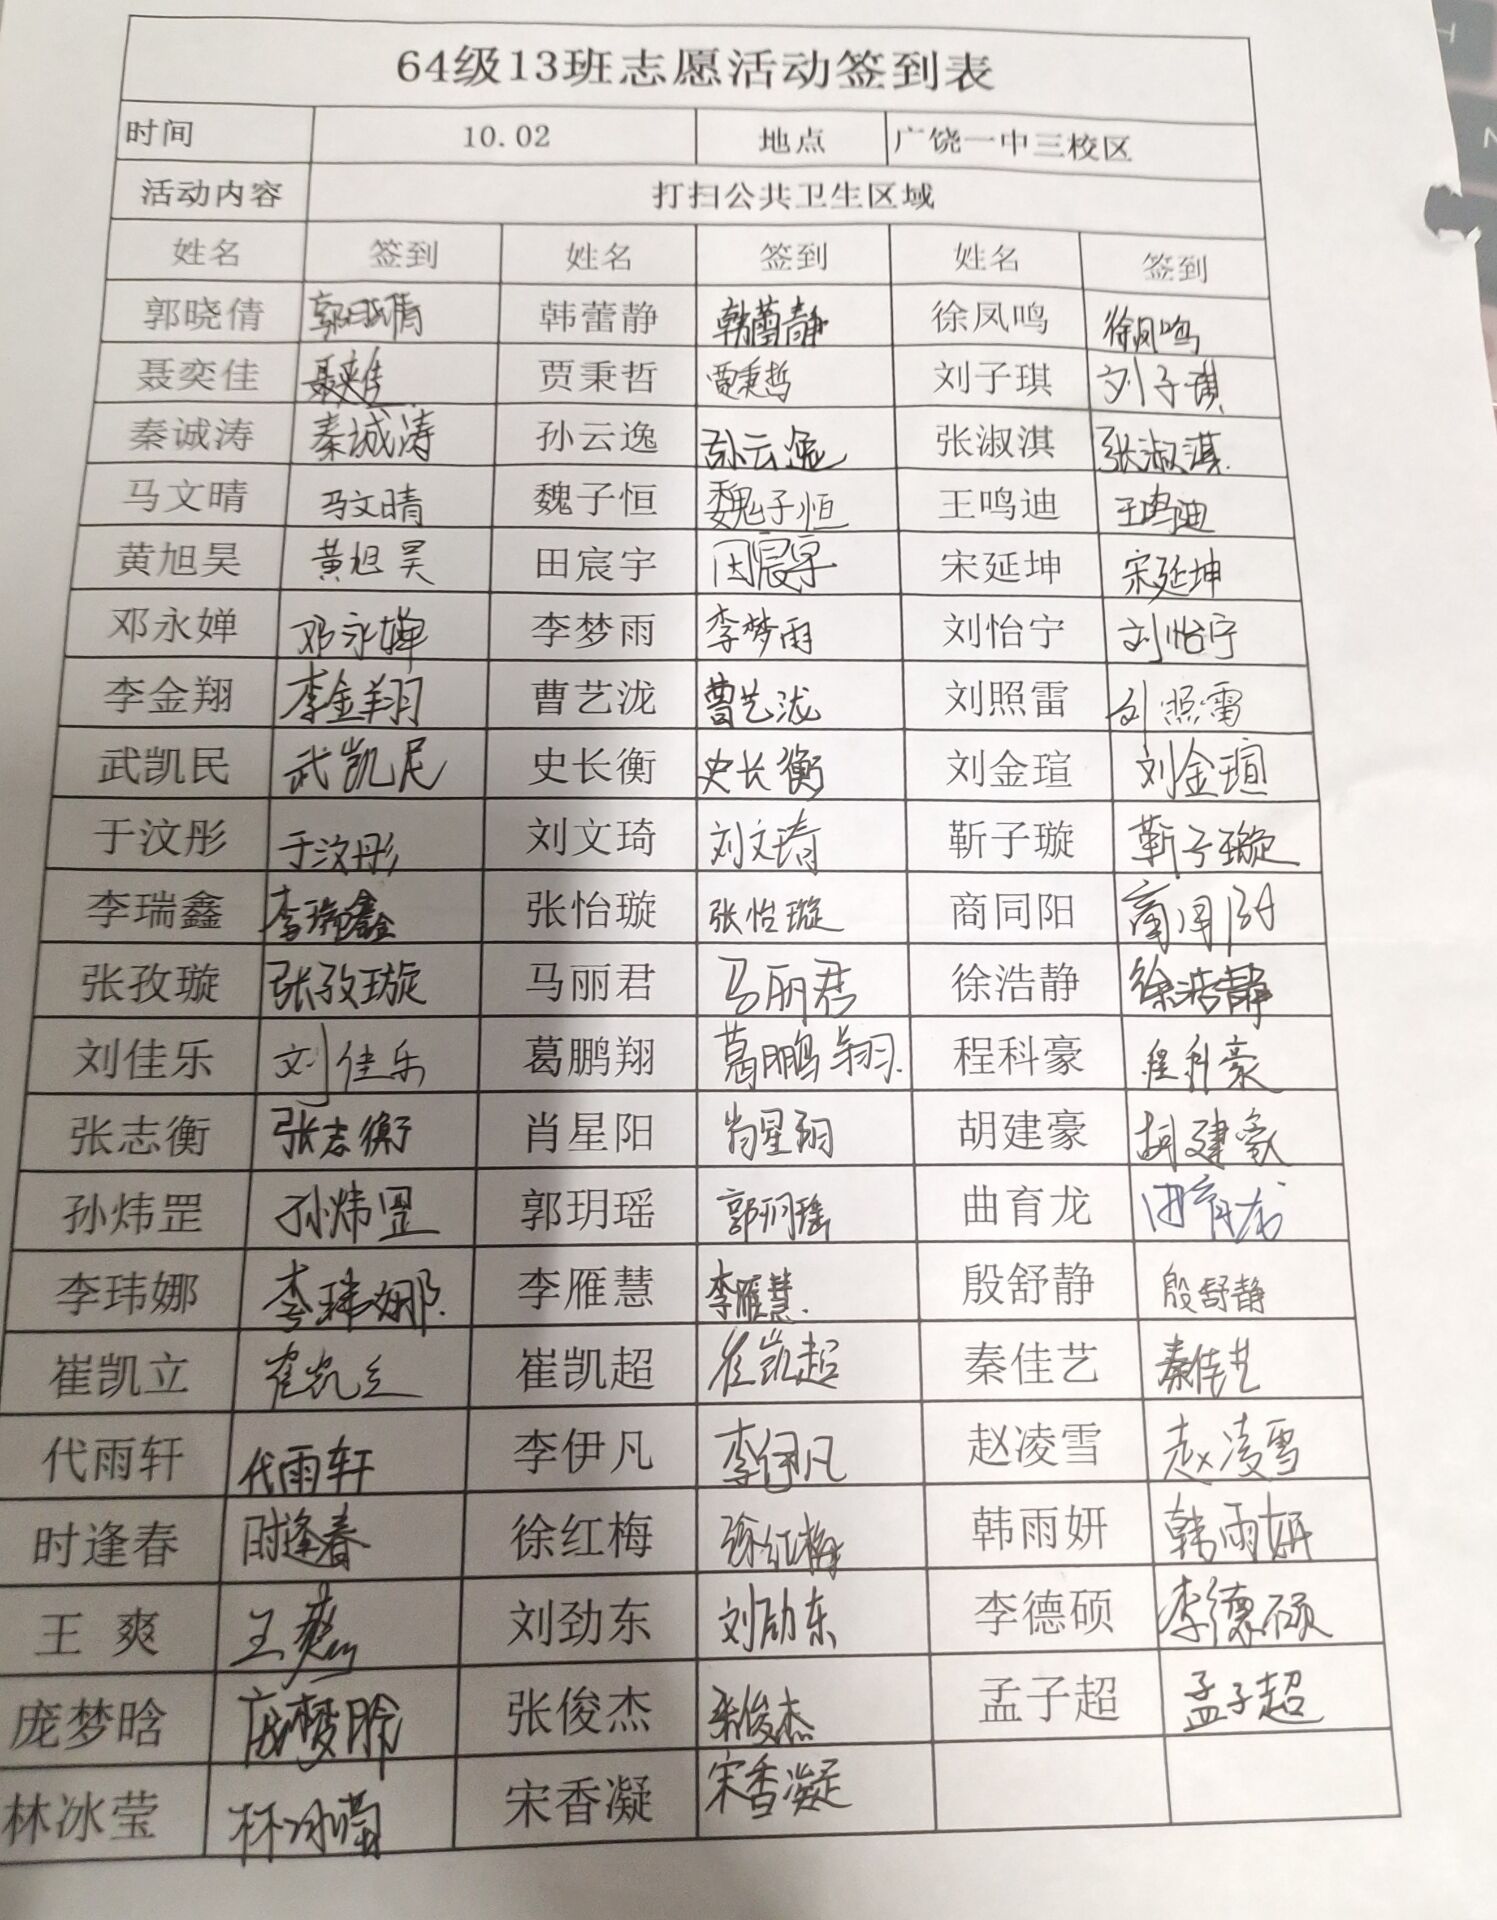 64级13班志愿活动签到表
时间 10.02 地点 广饶一中三校区
活动内容 打扫公共卫生区域
姓名 签到 姓名 签到 姓名 签到
郭晓倩 郭晓倩 韩蕾静 韩蕾静 徐凤鸣 徐凤鸣
聂奕佳 聂奕佳 贾秉哲 贾秉哲 刘子琪 刘子琪
秦诚涛 秦诚涛 孙云逸 孙云逸 张淑淇 张淑淇
马文晴 马文晴 魏子恒 魏子恒 王鸣迪 王鸣迪
黄旭昊 黄旭昊 田宸宇 田宸宇 宋延坤 宋延坤
邓永婵 邓永婵 李梦雨 李梦雨 刘怡宁 刘怡宁
李金翔 李金翔 曹艺泷 曹艺泷 刘照雷 刘照雷
武凯民 武凯民 史长衡 史长衡 刘金瑄 刘金瑄
于汶彤 于汶彤 刘文琦 刘文琦 靳子璇 靳子璇
李瑞鑫 李瑞鑫 张怡璇 张怡璇 商同阳 商同阳
张孜璇 张孜璇 马丽君 马丽君 徐浩静 徐浩静
刘佳乐 刘佳乐 葛鹏翔 葛鹏翔 程科豪 程科豪
张志衡 张志衡 肖星阳 肖星阳 胡建豪 胡建豪
孙炜罡 孙炜罡 郭玥瑶 郭玥瑶 曲育龙 曲育龙
李玮娜 李玮娜 李雁慧 李雁慧 殷舒静 殷舒静
崔凯立 崔凯立 崔凯超 崔凯超 秦佳艺 秦佳艺
代雨轩 代雨轩 李伊凡 李伊凡 赵凌雪 赵凌雪
时逢春 时逢春 徐红梅 徐红梅 韩雨妍 韩雨妍
王 爽 王爽 刘劲东 刘劲东 李德硕 李德硕
庞梦晗 庞梦晗 张俊杰 张俊杰 孟子超 孟子超
林冰莹 林冰莹 宋香凝 宋香凝